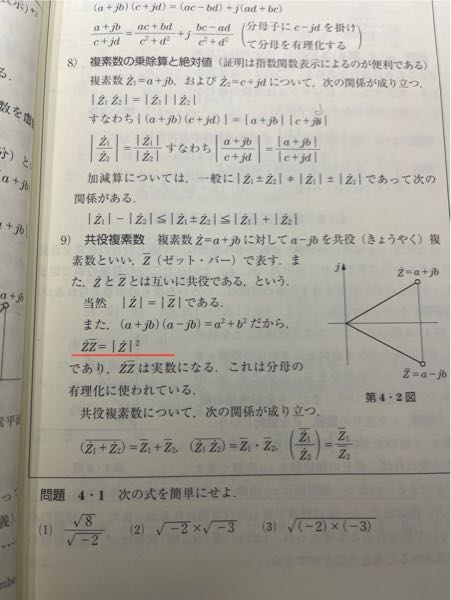 (a+jb)(c+jd)=(ac-bd)+j(ad+bc)
a+jb/c+jd = ac+bd/c²+d² + j bc-ad/c²+d² (分母子に c-jd を掛けて分母を有理化する)
8) 複素数の乗除算と絶対値 (証明は指数関数表示によるのが便利である)
複素数 Ż₁=a+jb, および Ż₂=c+jd について, 次の関係が成り立つ.
|Ż₁Ż₂|=|Ż₁||Ż₂|
すなわち |(a+jb)(c+jd)|=|a+jb||c+jb| d
|Ż₁/Ż₂|=|Ż₁|/|Ż₂| すなわち |a+jb/c+jd|=|a+jb|/|c+jd|
加減算については, 一般に |Ż₁±Ż₂|≠|Ż₁|±|Ż₂| であって次の
関係がある.
|Ż₁|-|Ż₂|≦|Ż₁±Ż₂|≦|Ż₁|+|Ż₂|
9) 共役複素数 複素数 Ż=a+jb に対して a-jb を共役 (きょうやく) 複
素数といい, Z̅ (ゼット・バー) で表す. ま
た, Ż と Z̅ とは互いに共役である, という.
当然 |Ż|=|Z̅| である.
また, (a+jb)(a-jb)=a²+b² だから,
ŻZ̅=|Ż|²
であり, ŻZ̅ は実数になる. これは分母の
有理化に使われている.
j
Ż=a+jb
Z̅=a-jb
第4・2図
共役複素数について, 次の関係が成り立つ.
(Ż₁+Ż₂)=Z̅₁+Z̅₂, (Ż₁Ż₂)=Z̅₁・Z̅₂, (Z̅₁/Ż₂)=Z̅₁/Z̅₂
問題 4・1 次の式を簡単にせよ.
(1) √8/√-2 (2) √-2×√-3 (3) √(-2)×(-3)